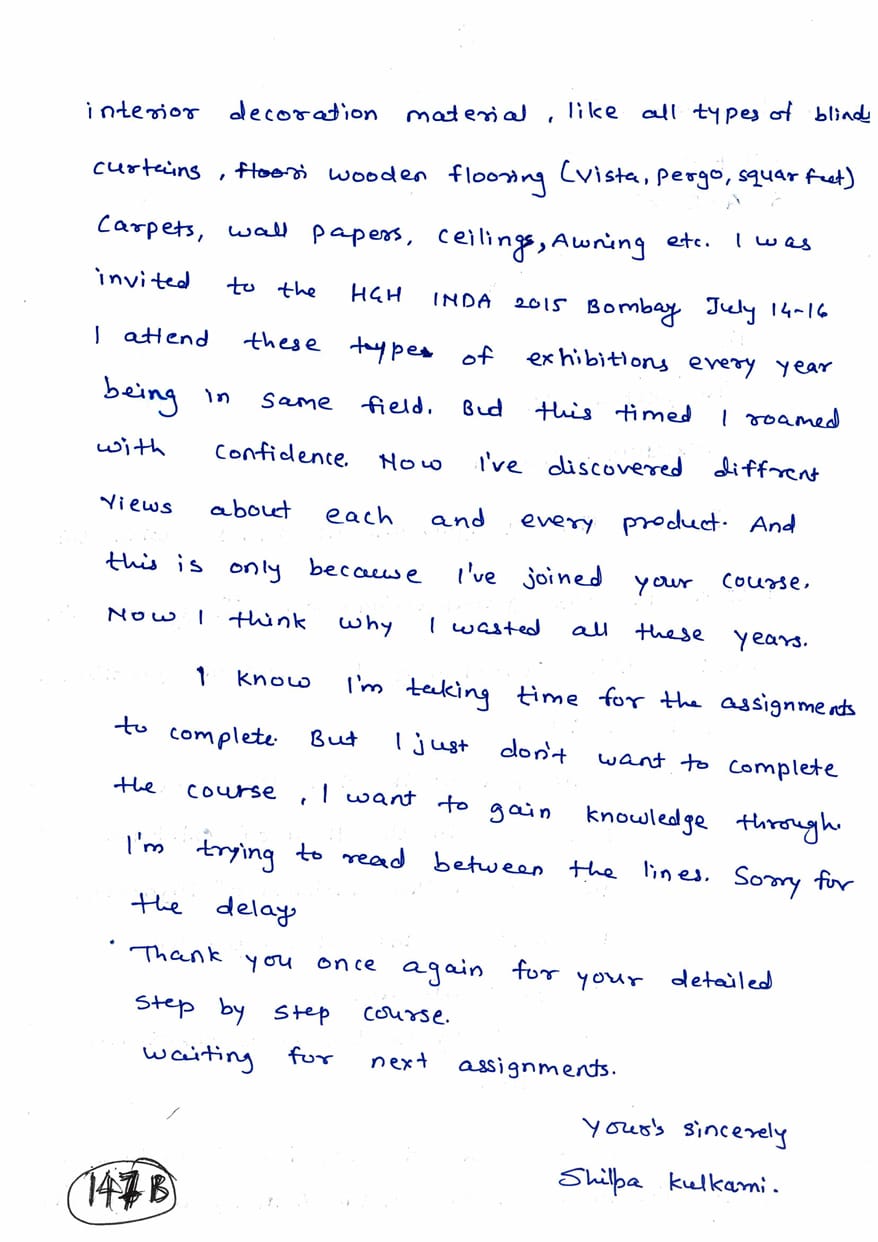 interior decoration material, like all types of blinds
curtains, floori wooden flooring (Vista, pergo, squar feet)
Carpets, wall papers, ceilings, Awning etc. I was
invited to the HGH INDA 2015 Bombay July 14-16
I attend these types of exhibitions every year
being in same field. But this timed I roamed
with confidence. Now I've discovered diffrent
views about each and every product. And
this is only because I've joined your course.
Now I think why I wasted all these years.
I know I'm taking time for the assignments
to complete. But I just don't want to complete
the course, I want to gain knowledge through.
I'm trying to read between the lines. Sorry for
the delay
Thank you once again for your detailed
step by step course.
waiting for next assignments.
Your's sincerely
Shilpa Kulkarni.
147B